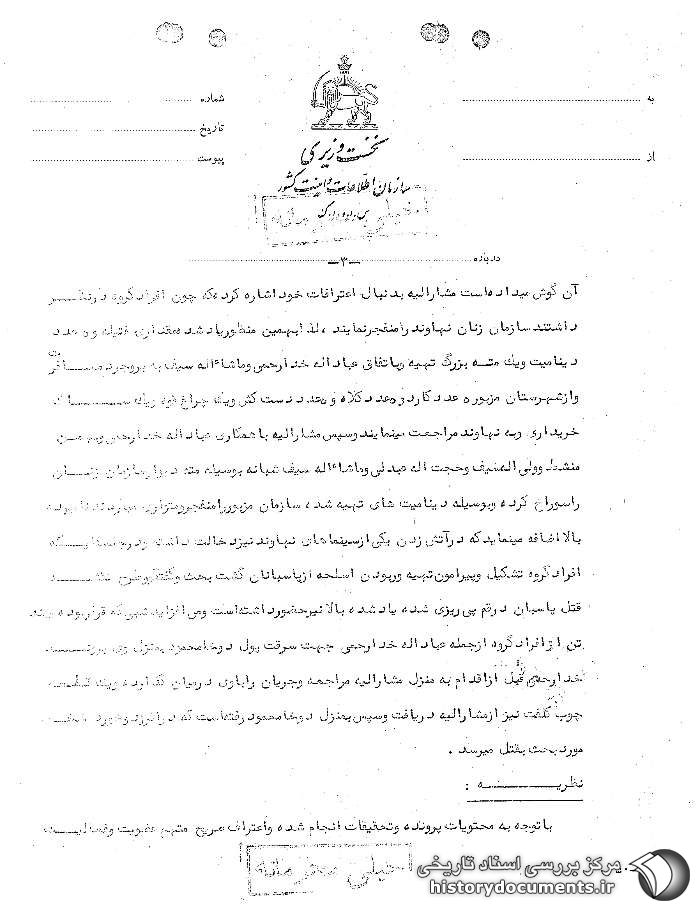 به
از
شماره
تاریخ
پیوست
نخست وزیری
سازمان اطلاعات و امنیت کشور
س.ا.و.ا.ک
خیلی محرمانه
درباره
-۳-
آن گوش میداده‌است مشارالیه بدنبال اعترافات خود اشاره کرده که چون افراد گروه در نظر
داشتند سازمان زنان نهاوند را منفجر نمایند ، لذا بهمین منظور یاد شده مقداری فتیله و عدد
دینامیت ویك مته بزرگ تهیه و باتفاق عباداله خدارحمی وماشاءاله سیف به بروجرد مسافرت
واز شهرستان مزبور عدد کارد و عدد کلاه و عدد دست کش ویك چراغ قوه ویك
خریداری وبه نهاوند مراجعت مینمایند وسپس مشارالیه با همکاری عباداله خدارحمی
منشط وولی اله سیف وحجت اله عبدلی وماشاءاله سیف شبانه بوسیله مته دیوار سازمان زنان
را سوراخ کرده وبوسیله دینامیت های تهیه شده ، سازمان مزبور را منفجر ومتواری میگردند نامبرده
بالا اضافه مینماید که در آتش زدن یکی از سینماهای نهاوند نیز دخالت داشته ودر جلسه‌ایکه
افراد گروه تشکیل وپیرامون تهیه وربودن اسلحه از پاسبانان گشت بحث وگفتگو
قتل پاسبان در قم پی ریزی شده یاد شده بالا نیز حضور داشته‌است ومی افزاید شبی که قرار بوده چند
تن از افراد گروه از جمله عباداله خدارحمی جهت سرقت پول دوخا محمود بمنزل وی بروند
خدارحمی قبل از اقدام به منزل مشارالیه مراجعه وجریان را با وی درمیان گذارده ویك قبضه
چوب کلفت نیز از مشارالیه دریافت وسپس بمنزل دوخا محمود رفته‌است که در اثر زد وخورد
مورد بحث بقتل میرسد .
نظریه :
با توجه به محتویات پرونده وتحقیقات انجام شده واعتراف صریح متهم عضویت وفعالیت
خیلی محرمانه
مرکز بررسی اسناد تاریخی
historydocuments.ir